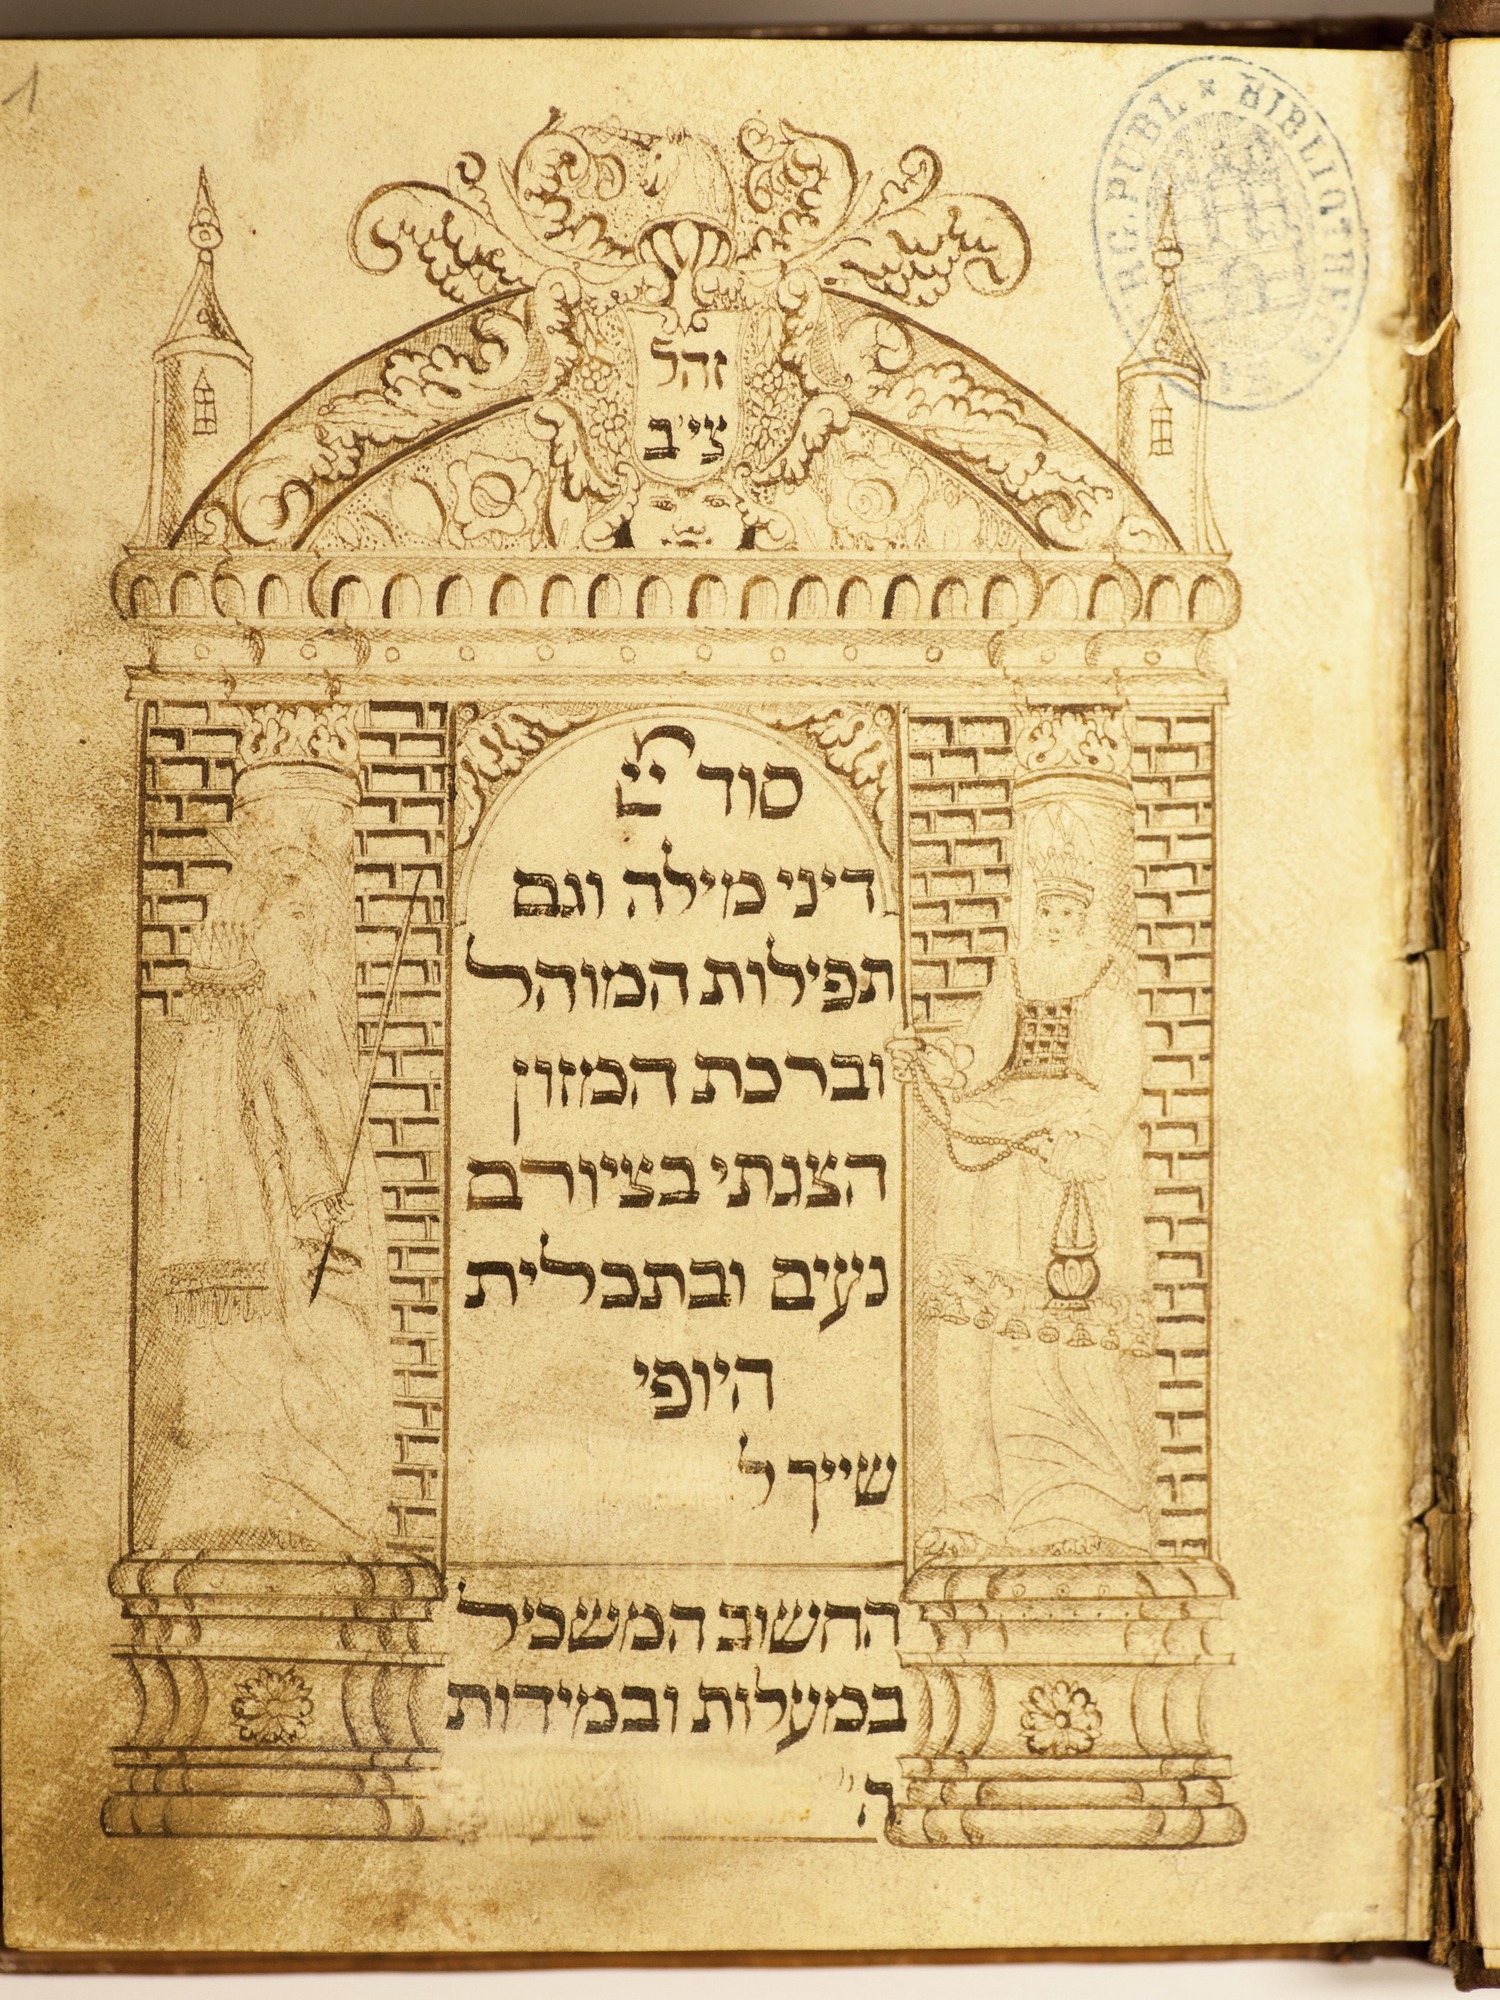 זהל
צי״ב
סוד ייי
דיני מילה וגם
תפילות המוהל
וברכת המזון
הצגתי בציורם
נעים ובתכלית
היופי
שייך ל
החשוב המשכיל
במעלות ובמידות
ה״
PUBL * BIBLIOTHEK
1